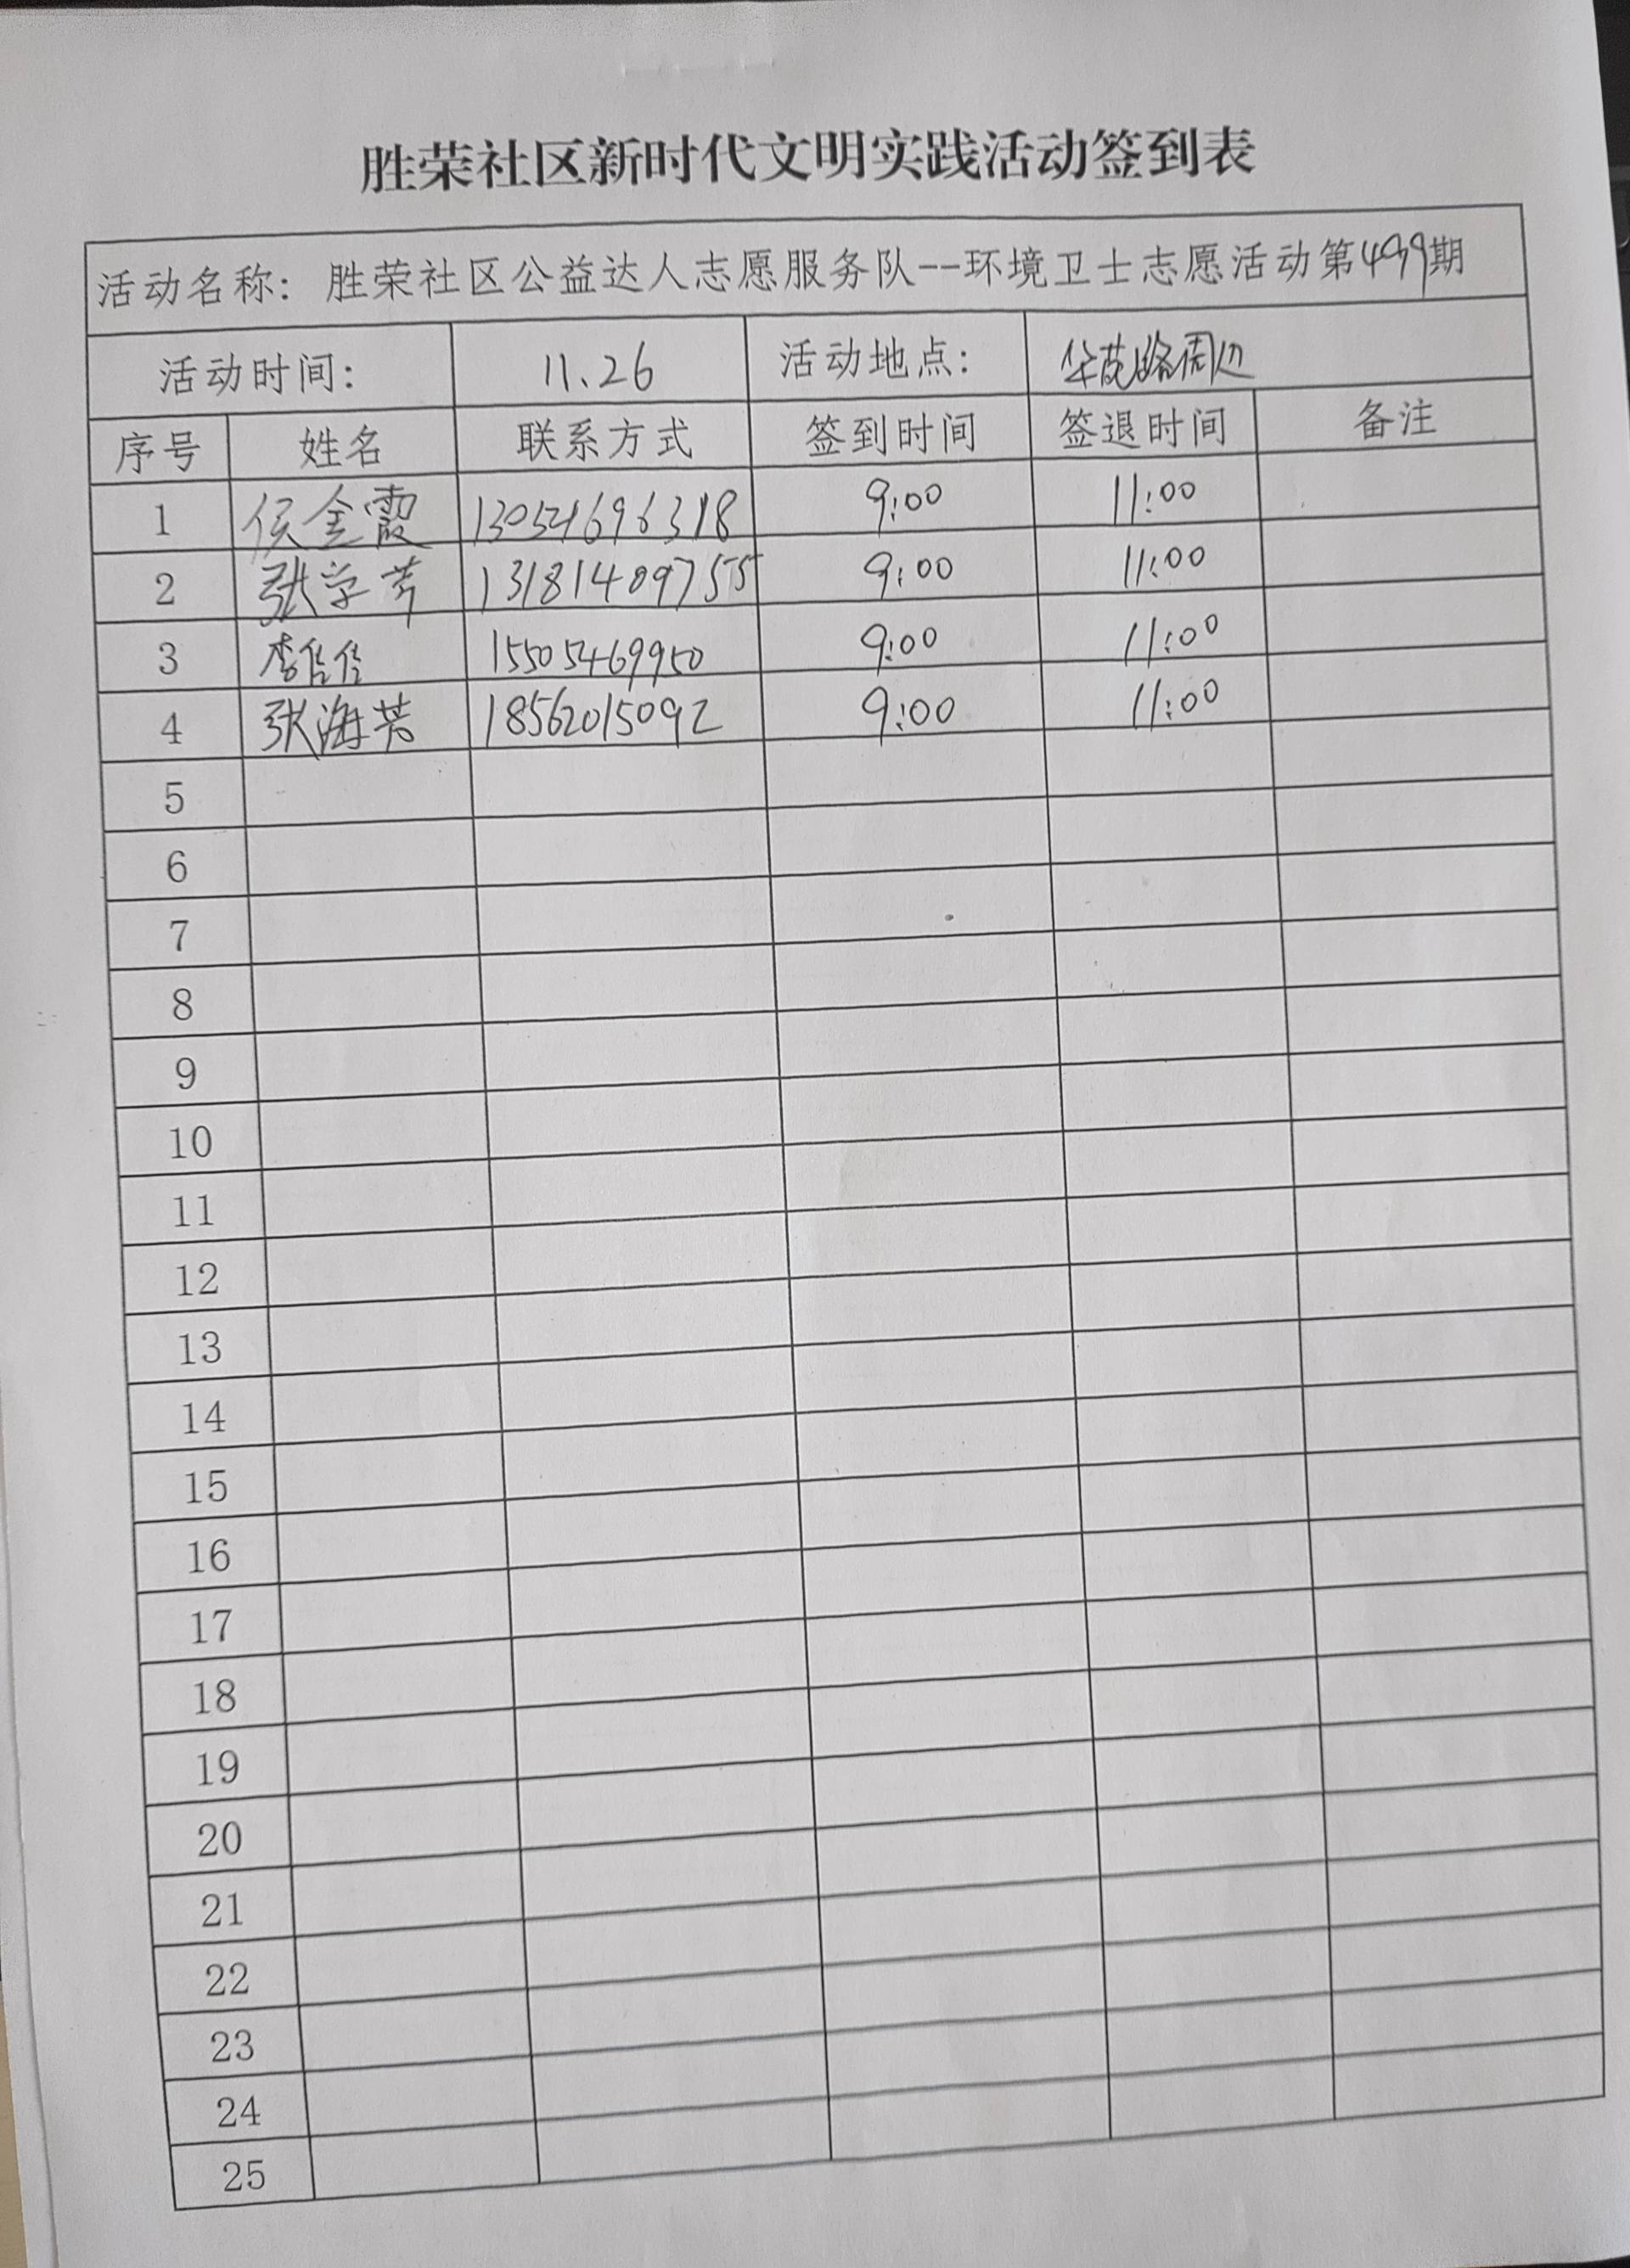 胜荣社区新时代文明实践活动签到表
活动名称：胜荣社区公益达人志愿服务队--环境卫士志愿活动第499期
活动时间： 11.26 活动地点： 华苑路周边
序号 姓名 联系方式 签到时间 签退时间 备注
1 侯金霞 13054696318 9:00 11:00
2 张学芹 13181409755 9:00 11:00
3 李佳佳 15505469950 9:00 11:00
4 张海芳 18562015092 9:00 11:00
5
6
7
8
9
10
11
12
13
14
15
16
17
18
19
20
21
22
23
24
25